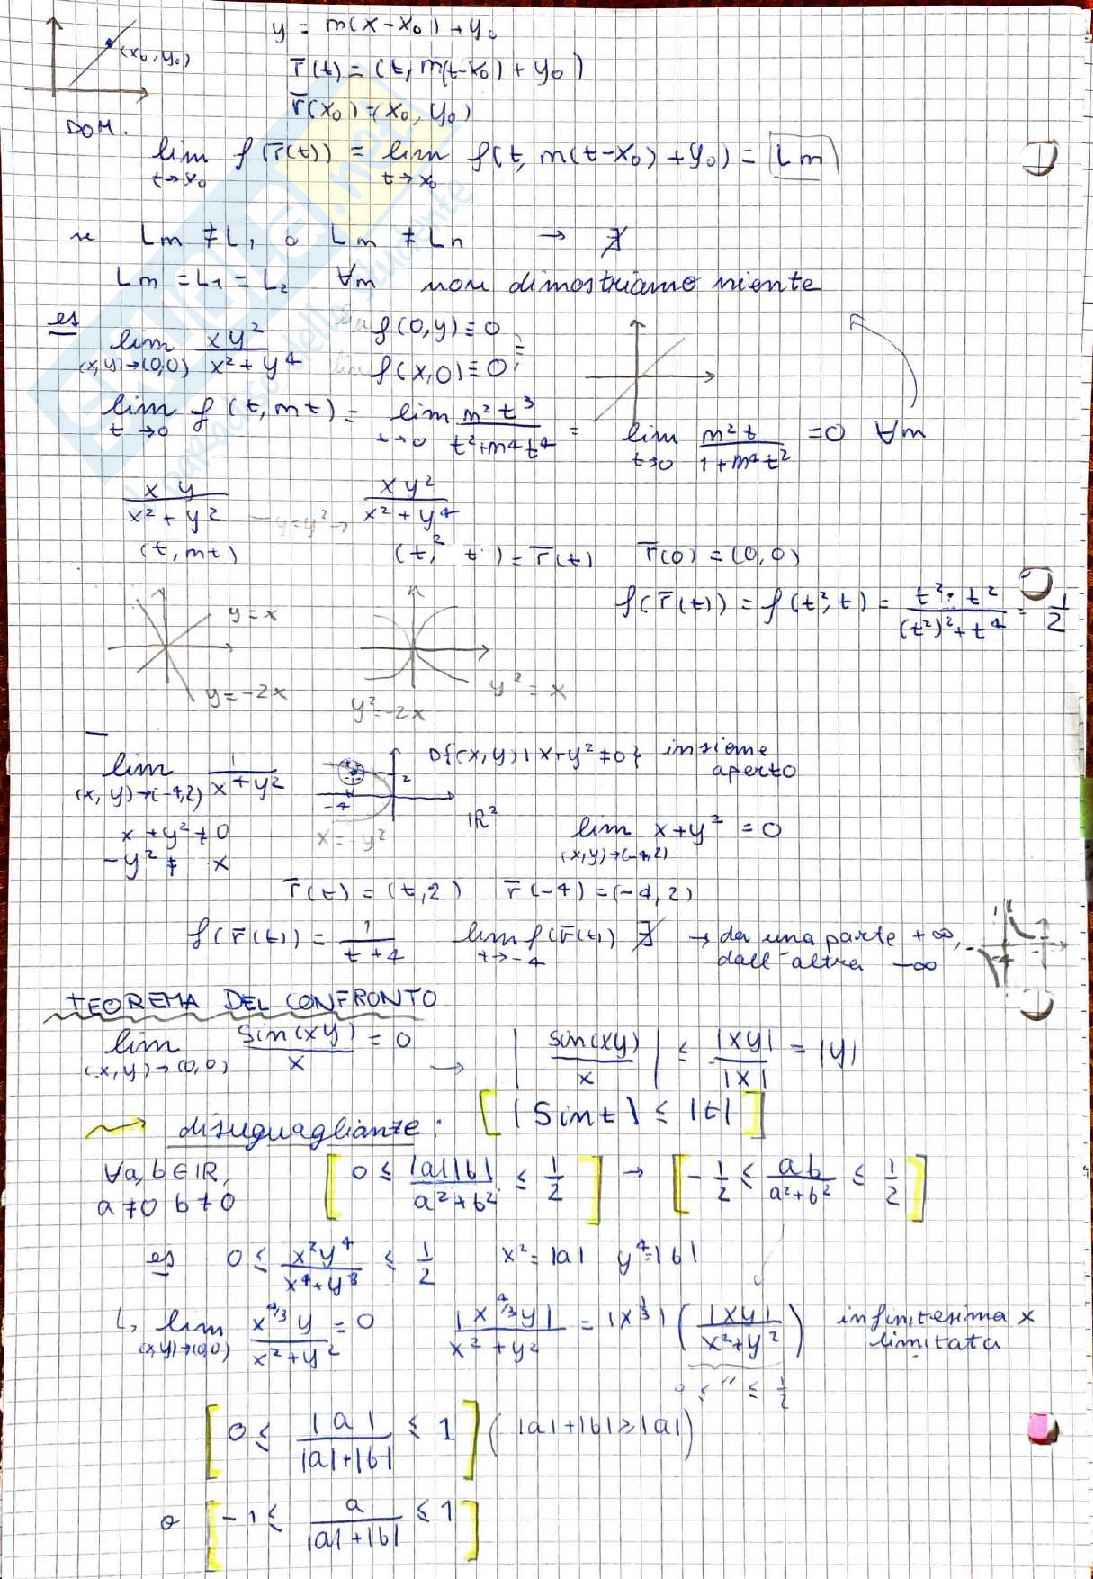 y = m(x-x₀)+y₀
(x₀, y₀)
r̄(t) = (t, m(t-x₀)+y₀)
r̄(x₀) = (x₀, y₀)
DOM.
lim t→x₀ f(r̄(t)) = lim t→x₀ f(t, m(t-x₀)+y₀) = Lm
se Lm ≠ L₁ o Lm ≠ Ln → ∄
Lm = L₁ = L₂ ∀m non dimostriamo niente
es lim (x,y)→(0,0) xy²/(x²+y⁴) f(0,y) ≡ 0
f(x,0) ≡ 0
lim t→0 f(t, mt) = lim t→0 m²t³/(t²+m⁴t⁴) = lim t→0 m²t/(1+m⁴t²) = 0 ∀m
xy/(x²+y²) — y=y² → xy²/(x²+y⁴)
(t, mt) (t², t) = r̄(t) r̄(0) = (0,0)
f(r̄(t)) = f(t², t) = t²·t²/((t²)²+t⁴) = 1/2
y = x
y = -2x
y² = x
y² = -2x
lim (x,y)→(-4,2) 1/(x+y²) D{(x,y) | x+y² ≠ 0} insieme aperto
2
-4
x = -y²
IR²
x+y² ≠ 0
-y² ≠ x
lim (x,y)→(-4,2) x+y² = 0
r̄(t) = (t,2) r̄(-4) = (-4,2)
f(r̄(t)) = 1/(t+4) lim t→-4 f(r̄(t)) ∄ → da una parte +∞,
dall'altra -∞
-4
TEOREMA DEL CONFRONTO
lim (x,y)→(0,0) sin(xy)/x = 0 → |sin(xy)/x| ≤ |xy|/|x| = |y|
disuguaglianze: [|sin t| ≤ |t|]
∀a,b∈IR, [0 ≤ |a||b|/(a²+b²) ≤ 1/2] → [-1/2 ≤ ab/(a²+b²) ≤ 1/2]
a≠0 b≠0
es 0 ≤ x²y⁴/(x⁴+y⁸) ≤ 1/2 x² = |a| y⁴ = |b|
↳ lim (x,y)→(0,0) x^(4/3) y/(x²+y²) = 0 |x^(4/3) y|/(x²+y²) = |x^(1/3)| (|xy|/(x²+y²)) infinitesima x
limitata
0 ≤ " ≤ 1/2
[0 ≤ |a|/(|a|+|b|) ≤ 1] (|a|+|b| ≥ |a|)
o [-1 ≤ a/(|a|+|b|) ≤ 1]